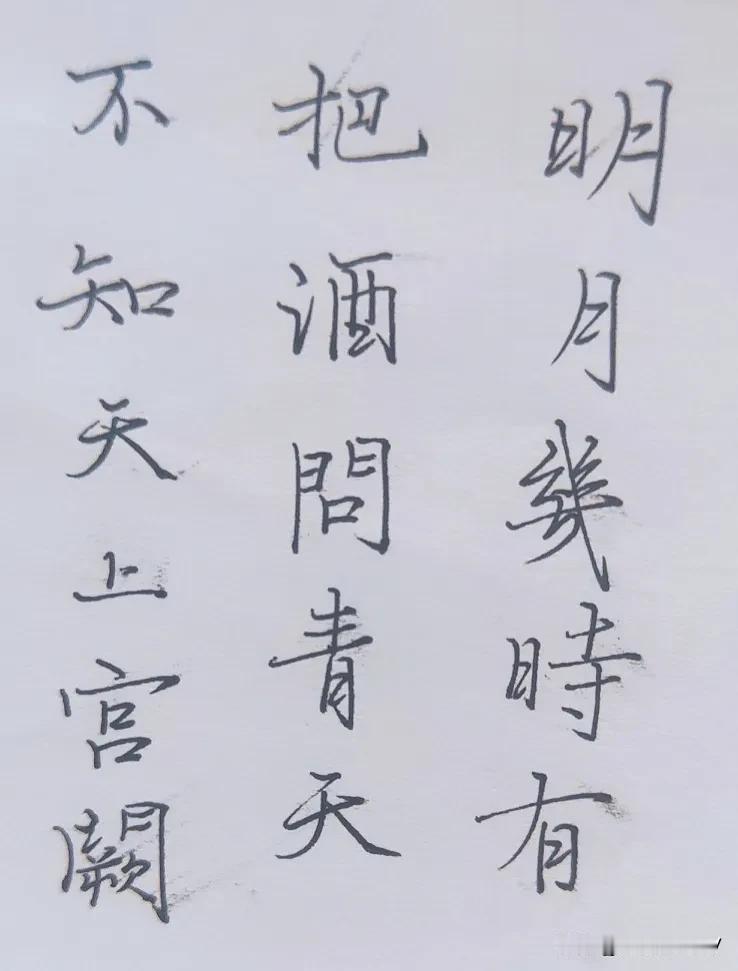 明月幾時有
把酒問青天
不知天上宫闕